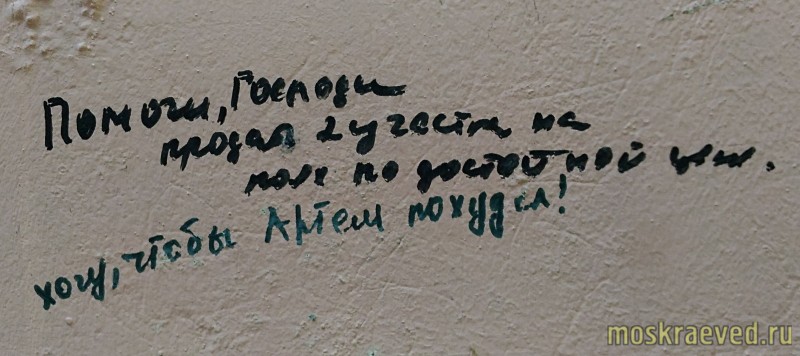 Помоги, Господи
продать 2 участка на
по достойной цене.
хочу, чтобы Артем похудел!
moskraeved.ru